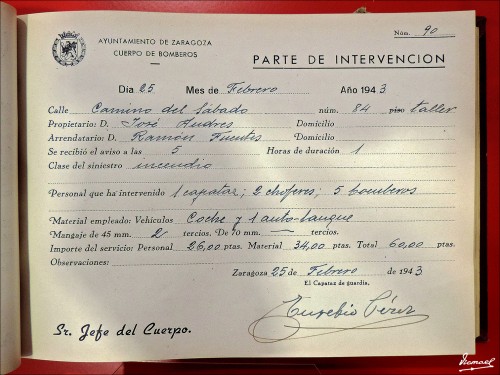 AYUNTAMIENTO DE ZARAGOZA
CUERPO DE BOMBEROS
Núm. 90
PARTE DE INTERVENCION
Día 25 Mes de Febrero Año 1943
Calle Camino del Sábado núm. 84 piso taller
Propietario: D. José Andres Domicilio
Arrendatario: D. Ramón Fuentes Domicilio
Se recibió el aviso a las 5 Horas de duración 1
Clase del siniestro incendio
Personal que ha intervenido 1 capataz; 2 choferes; 5 bomberos
Material empleado: Vehículos Coche y 1 auto-tanque
Mangaje de 45 mm. 2 tercios. De 70 mm. — tercios.
Importe del servicio: Personal 26,00 ptas. Material 34,00 ptas. Total 60,00 ptas.
Observaciones:
Zaragoza 25 de Febrero de 1943
El Capataz de guardia,
Eusebio Pérez
Sr. Jefe del Cuerpo.